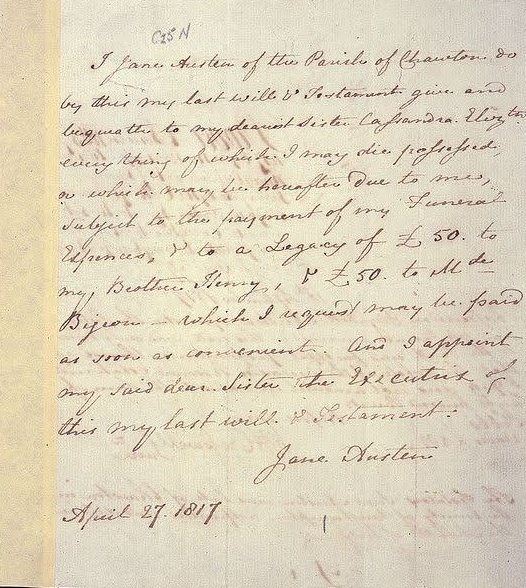 I Jane Austen of the Parish of Chawton do
by this my last will & Testament give and
bequeath to my dearest Sister Cassandra Elizth
every thing of which I may die possessed,
or which may be hereafter due to me,
subject to the payment of my Funeral
Expences, & to a Legacy of £50. to
my Brother Henry, & £50. to Mde
Bigeon – which I request may be paid
as soon as convenient. And I appoint
my said dear Sister the Executrix of
this my last will & Testament.
Jane Austen
April 27. 1817